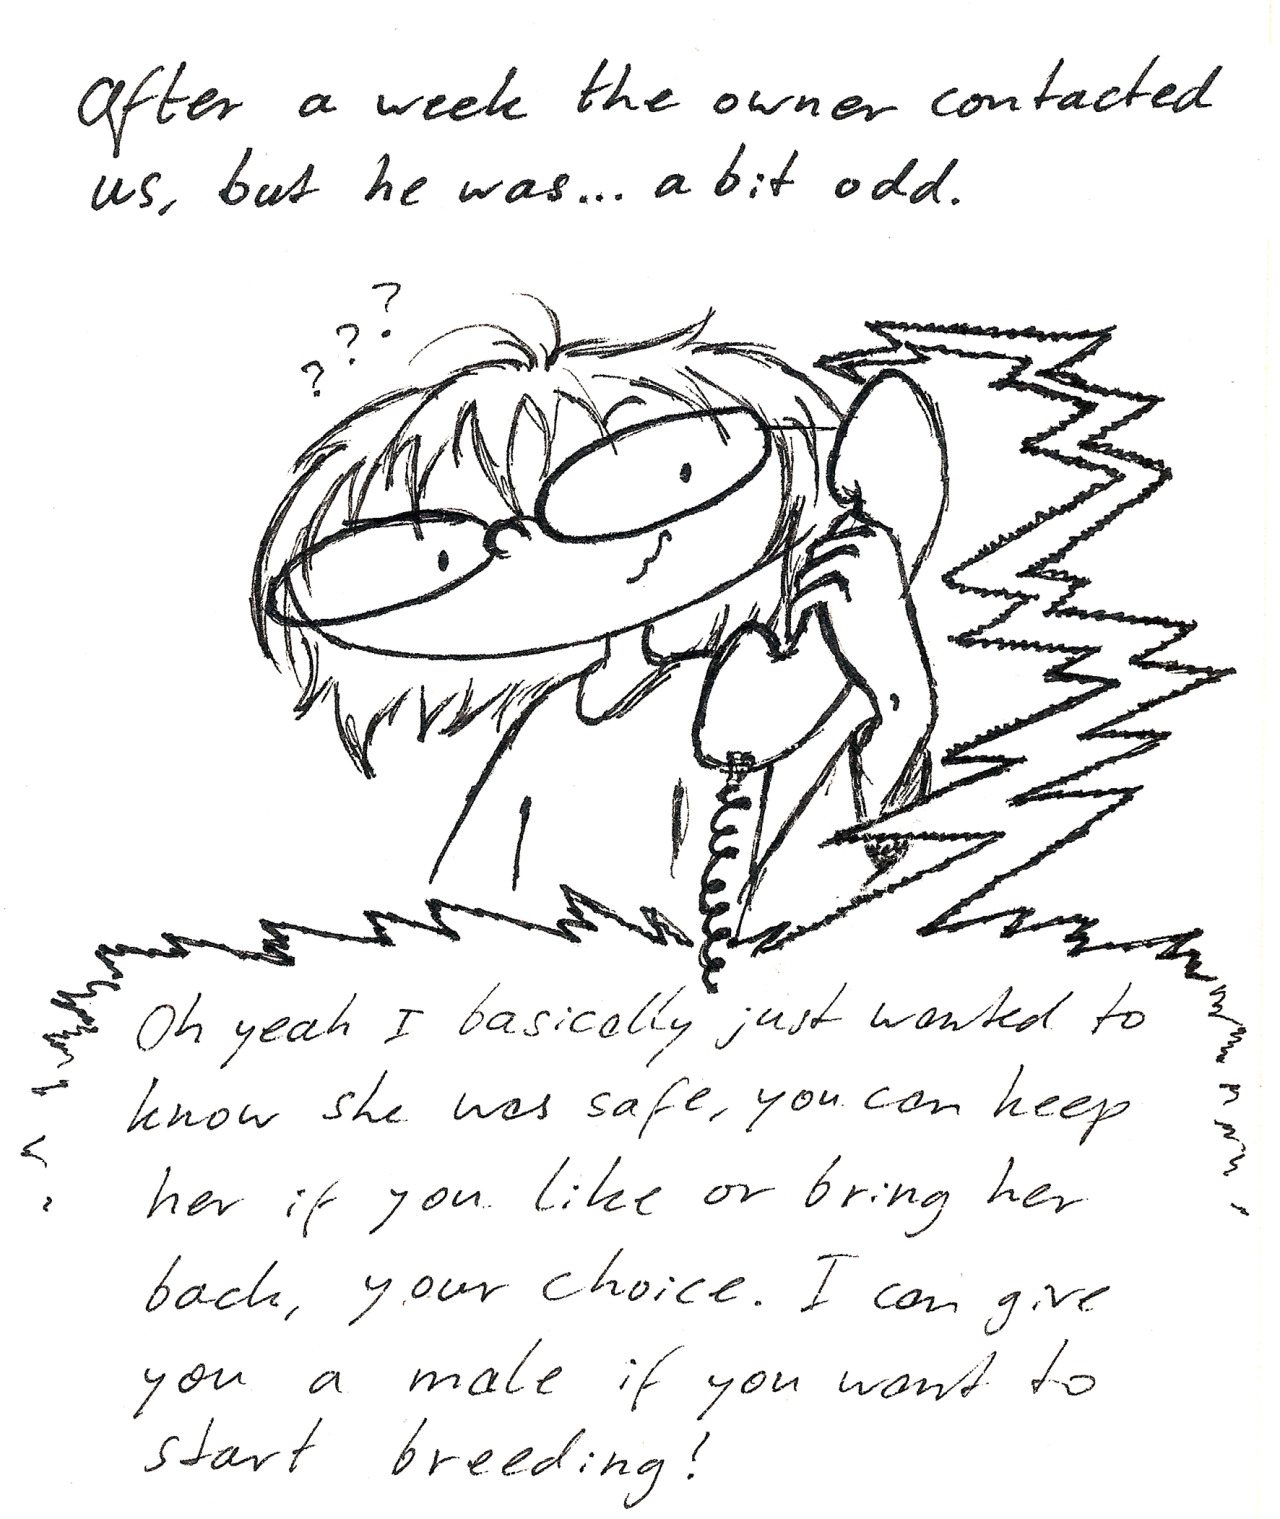 After a week the owner contacted
us, but he was... a bit odd.
? ? ?
Oh yeah I basically just wanted to
know she was safe, you can keep
her if you like or bring her
back, your choice. I can give
you a male if you want to
start breeding!